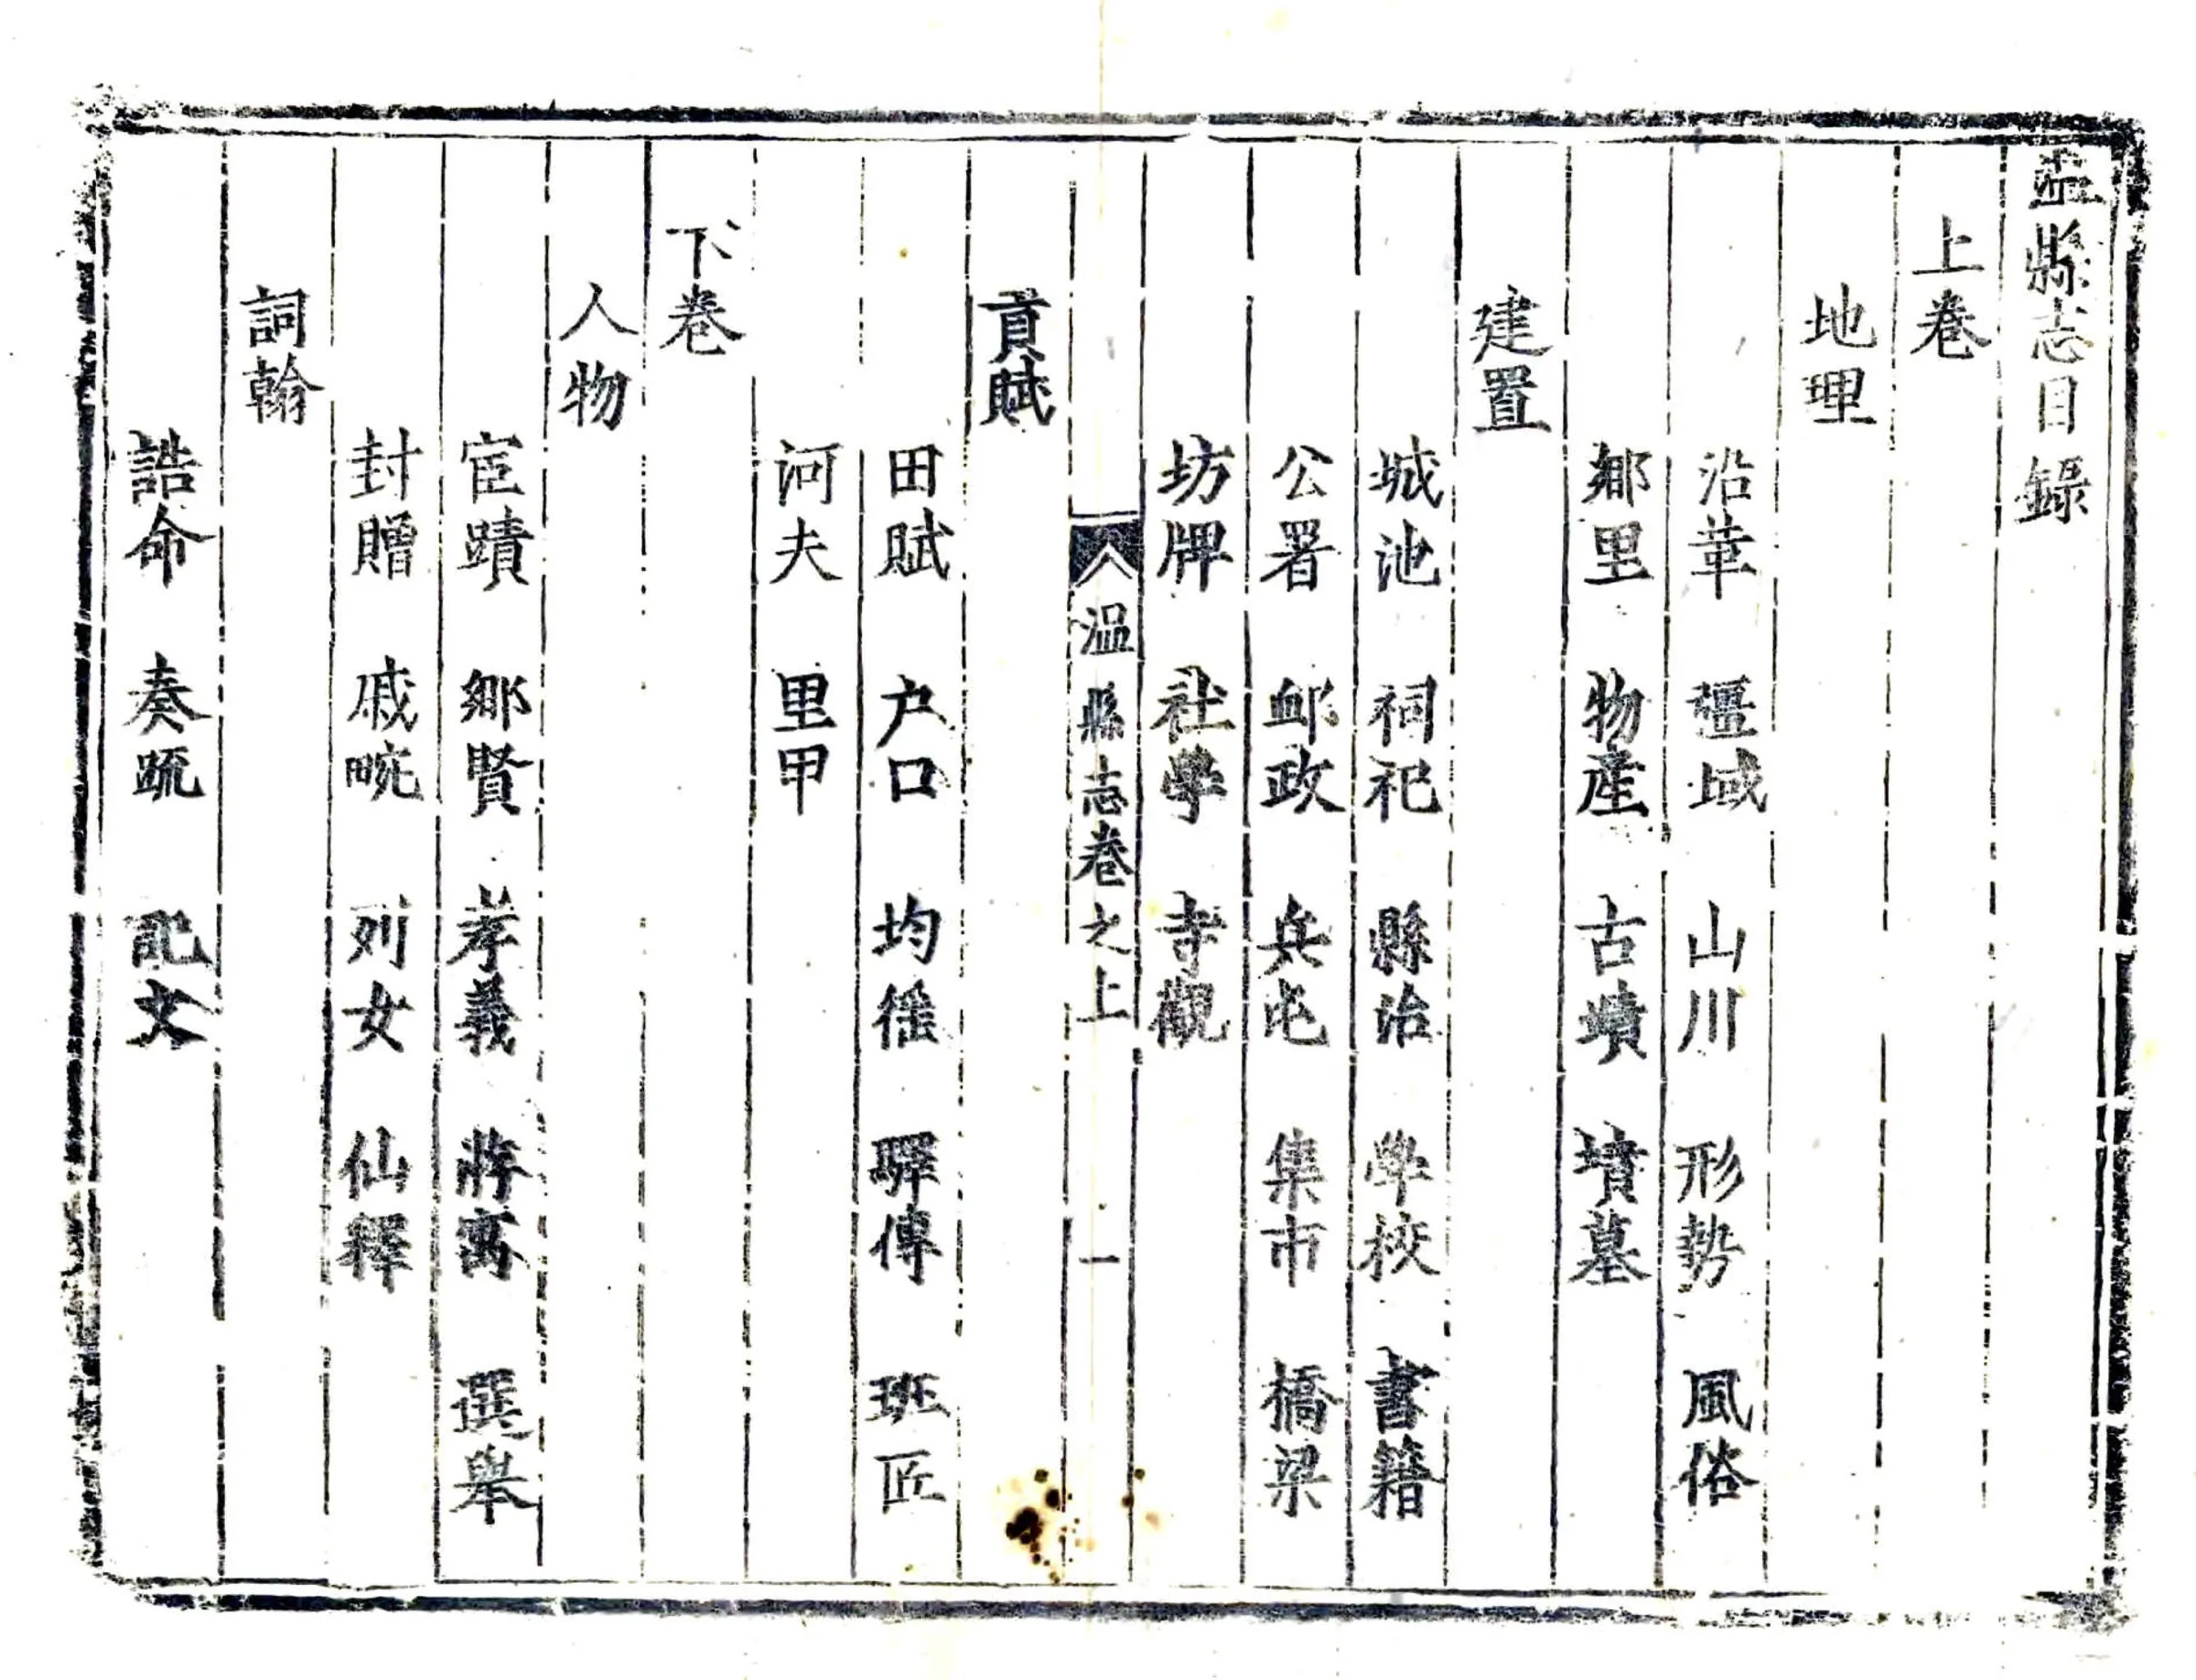 温縣志目錄
上卷
地理
沿革 疆域 山川 形勢 風俗
鄉里 物產 古蹟 墳墓
建置
城池 祠祀 縣治 學校 書籍
公署 郵政 兵屯 集市 橋梁
坊牌 社學 寺觀
温縣志卷之上 一
貢賦
田賦 户口 均徭 驛傳 班匠
河夫 里甲
下卷
人物
宦蹟 鄉賢 孝義 將寓 選舉
封贈 戚畹 列女 仙釋
詞翰
誥命 奏疏 記文